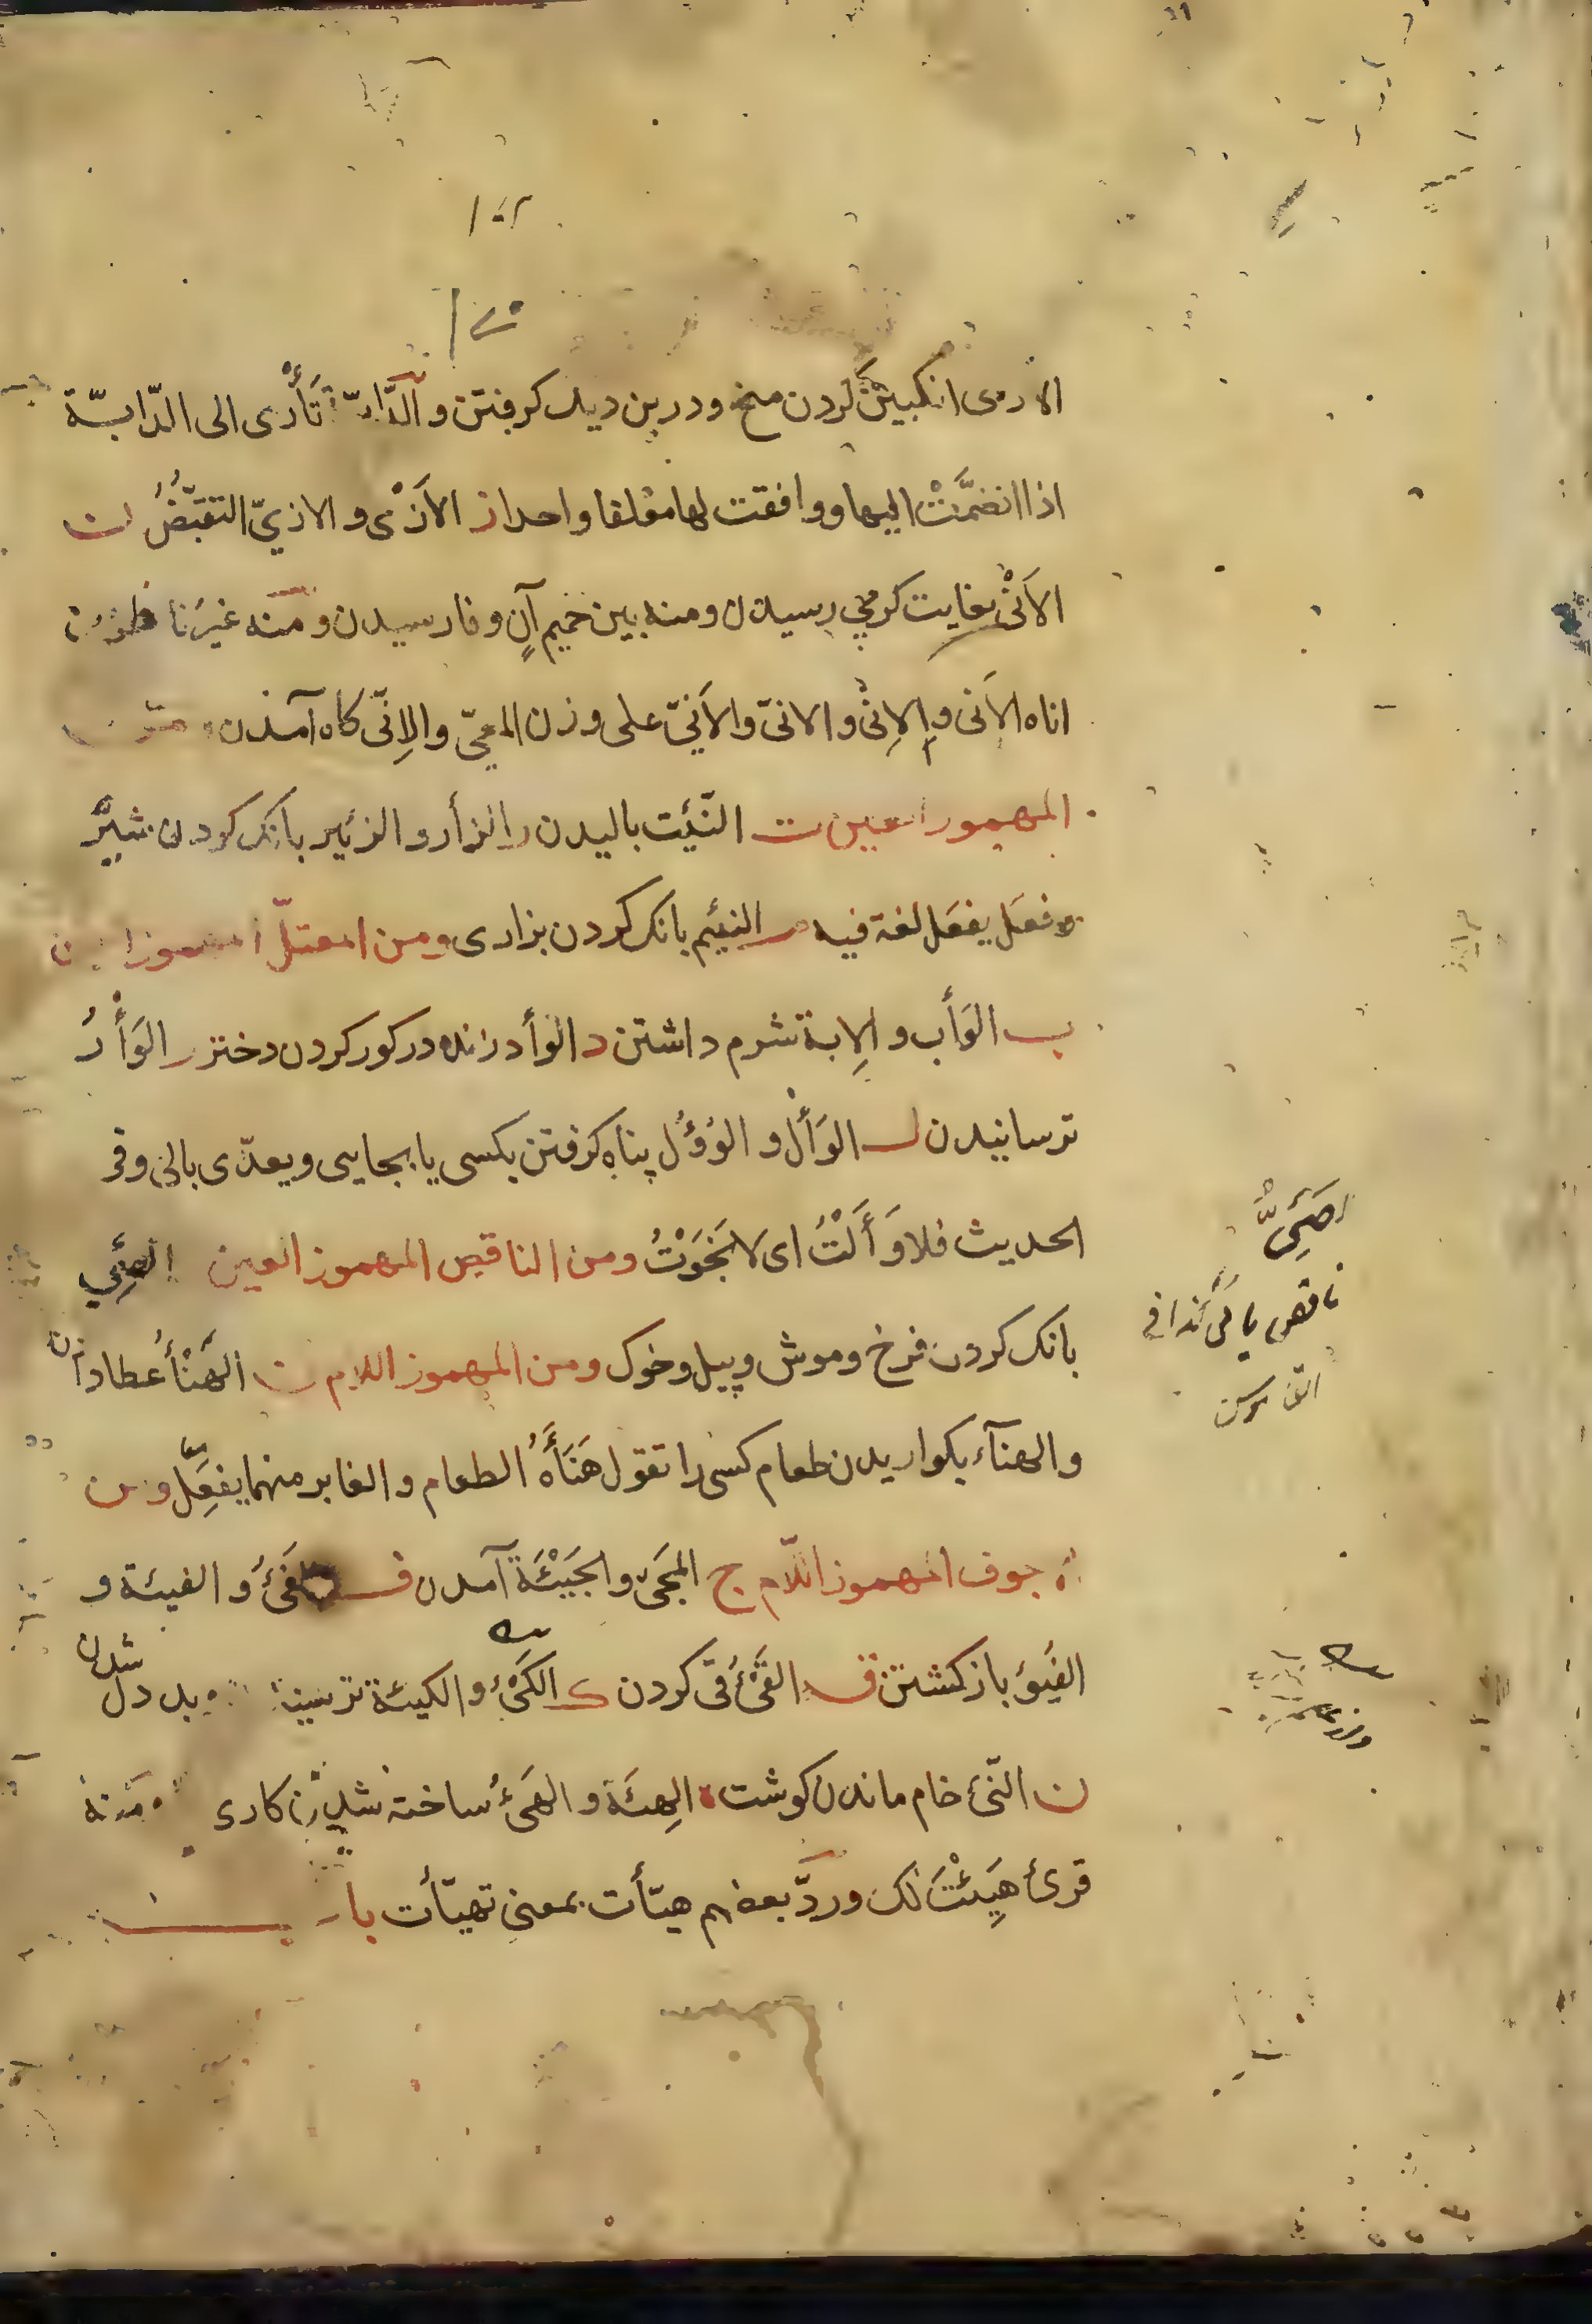 الاری انکبین کردن منج ودربن دیک کرفتن والدّابّة تَأْرى الى الدّابّة
اذا انضمَّتْ اليها ووافقت لها معلفا واحدا ز الاَزْى والازىّ التقبّضُ ن
الاَنْى بغایت کرمی رسیدن ومنه بين حميم آنٍ وفارسیدن ومنه غيرَ نا
اناه الاَنى والاِنى والانىّ والاَنىّ على وزن المعىّ والاِنىّ کاه آمدن
المهموز العين ت النّئيت بالیدن ر الزأر والزئير بانک کردن شیر
وفعَل يفعَل لغة فيه م النئيم بانک کردن بزاری ومن المعتلّ المهموز العين
ب الوَأب والاِبة شرم داشتن د الوأد زنده در کور کردن دختر ر الوَأْرُ
ترسانیدن ل الوَأْل والوُؤُل پناه کرفتن بکسی یا بجایی ويعدّى بالى وفى
الحديث فلا وَأَلْتُ اى لا نَجَوْتُ ومن الناقص المهموز العين الصَئِي
بانک کردن فرخ وموش وپیل وخوک ومن المهموز اللام ن الهَنْأ عطا دادن
والهنآء بکواریدن طعام کسی را تقول هَنَأَهُ الطعام والغابر منهما يفعِل ومن
الاجوف المهموز اللّام ج المَجىُ والجَيْئَة آمدن ف الفَىْءُ والفيئة و
الفُيُوْ بازکشتن ق القَىْءُ قی کردن ک الكَىْءُ والكيئة بددل شدن
ن النّىْء خام ماندن کوشت ه الهِيئَة والهَىْءُ ساخته شدن کاری ومنه
قرئ هِئْتَ لك وردّ بعضهم هيّأت بمعنى تهيّأت باب
صَئِىٌّ